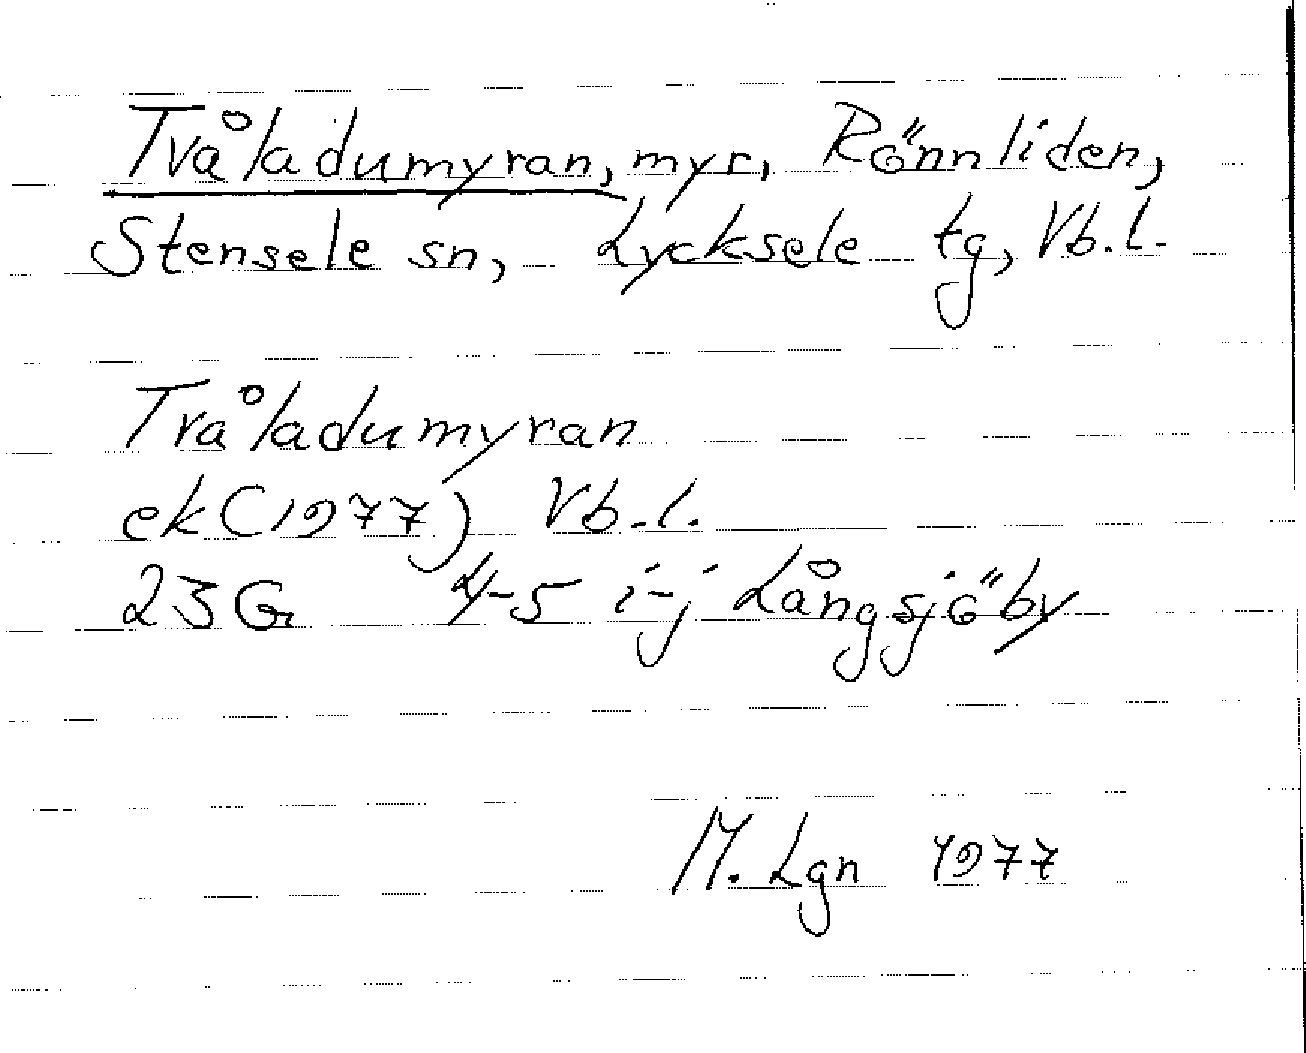 Tvåladumyran, myr, Rönnliden,
Stensele sn, Lycksele tg, Vb.l.
Tvåladumyran
ek (1977) Vb.l.
23G 4-5 i-j Långsjöby
M. Lgn 1977